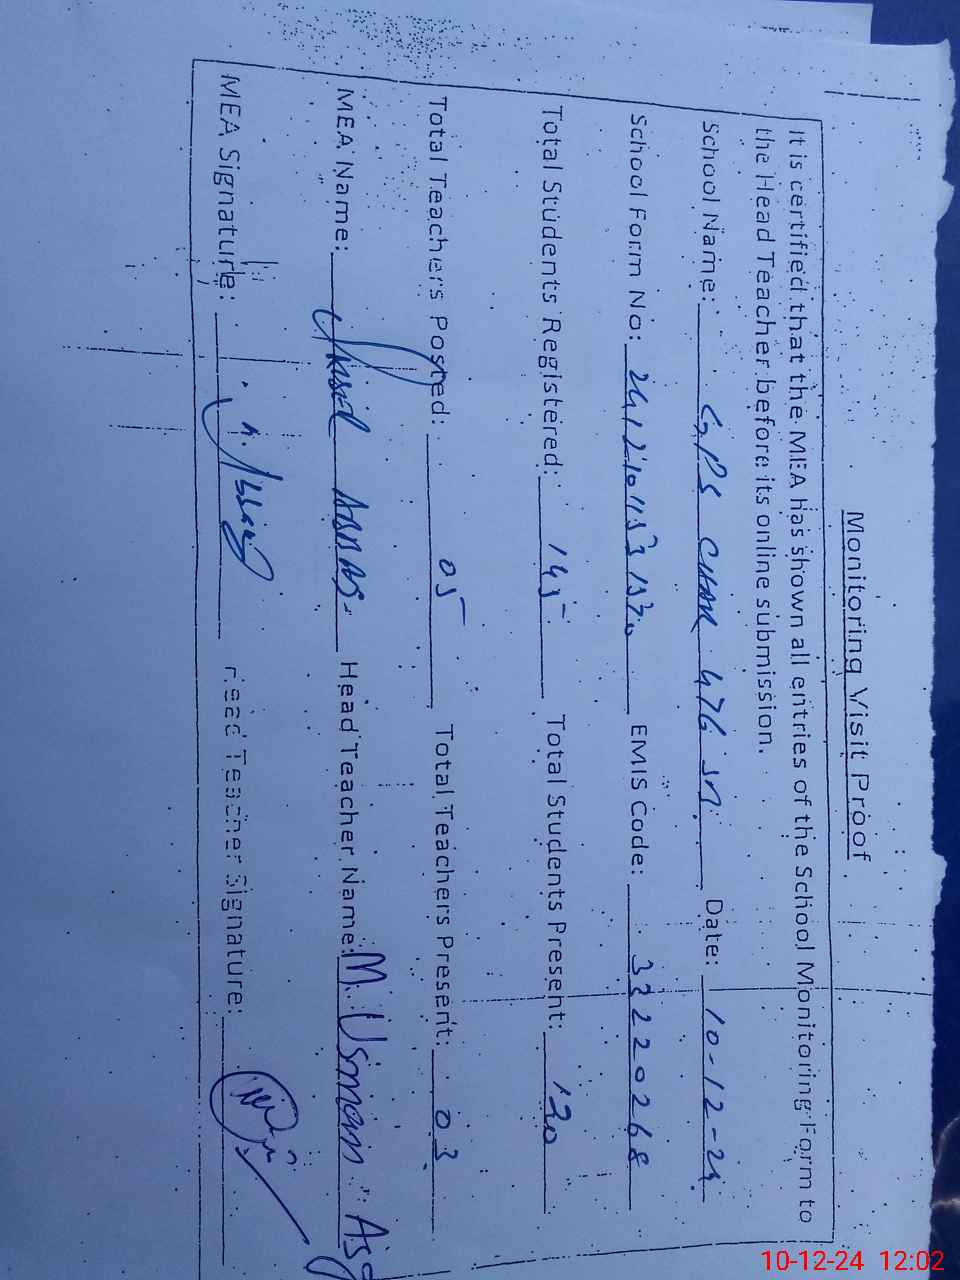 Monitoring Visit Proof
It is certified that the MEA has shown all entries of the School Monitoring Form to
the Head Teacher before its online submission.
School Name: GPS CHAK 476 JB Date: 10-12-24
School Form No: EMIS Code: 33220268
Total Students Registered: 145 Total Students Present: 120
Total Teachers Posted: 05 Total Teachers Present: 03
MEA Name: Head Teacher Name: M. Usman
MEA Signature: Head Teacher Signature:
10-12-24 12:02